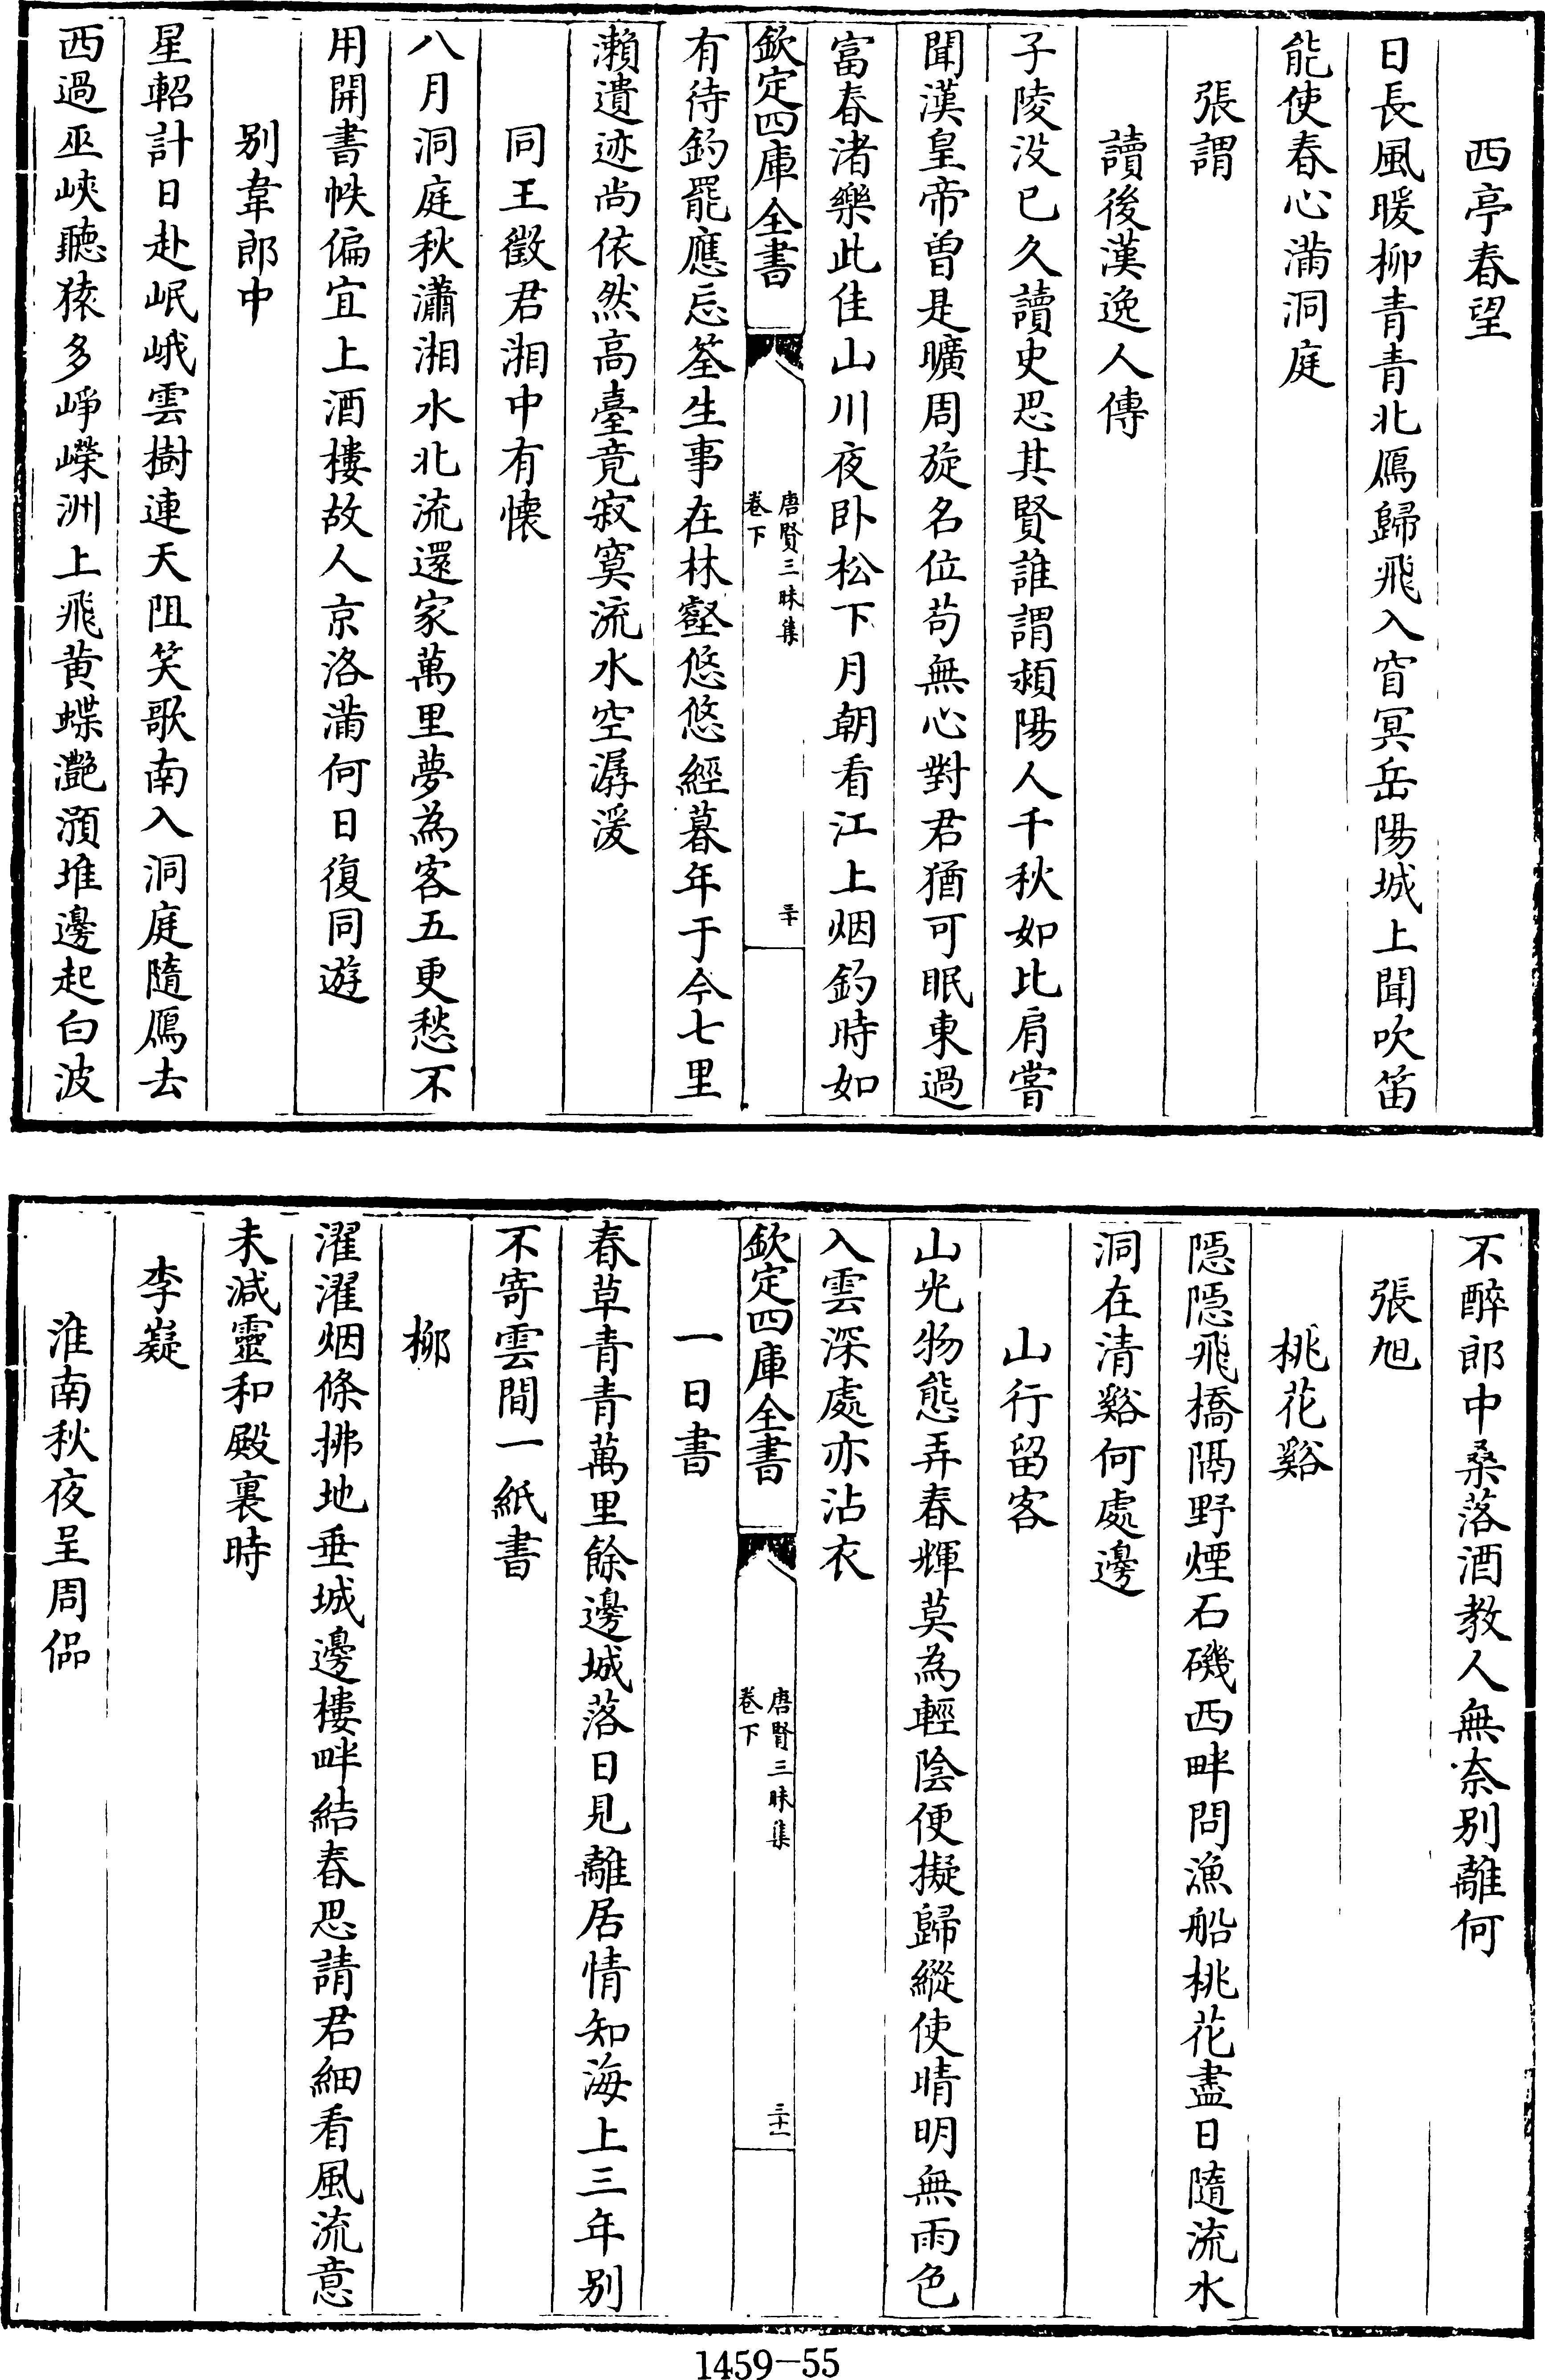 西亭春望
日長風暖柳青青北鴈歸飛入窅冥岳陽城上聞吹笛
能使春心滿洞庭
張謂
讀後漢逸人傳
子陵没已久讀史思其賢誰謂潁陽人千秋如比肩嘗
聞漢皇帝曾是曠周旋名位苟無心對君猶可眠東過
富春渚樂此佳山川夜卧松下月朝看江上烟釣時如
欽定四庫全書
唐賢三昧集
卷下
三十
有待釣罷應忘筌生事在林壑悠悠經暮年于今七里
瀨遺迹尚依然高臺竟寂寞流水空潺湲
同王徵君湘中有懷
八月洞庭秋瀟湘水北流還家萬里夢為客五更愁不
用開書帙偏宜上酒樓故人京洛滿何日復同遊
别韋郎中
星軺計日赴岷峨雲樹連天阻笑歌南入洞庭隨鴈去
西過巫峽聽猿多崢嶸洲上飛黄蝶灔澦堆邊起白波
不醉郎中桑落酒教人無奈别離何
張旭
桃花谿
隱隱飛橋隔野煙石磯西畔問漁船桃花盡日隨流水
洞在清谿何處邊
山行留客
山光物態弄春輝莫為輕陰便擬歸縱使晴明無雨色
入雲深處亦沾衣
欽定四庫全書
唐賢三昧集
卷下
三十一
一日書
春草青青萬里餘邊城落日見離居情知海上三年别
不寄雲間一紙書
栁
濯濯烟條拂地垂城邊樓畔結春思請君細看風流意
未減靈和殿裏時
李嶷
淮南秋夜呈周侣
1459-55